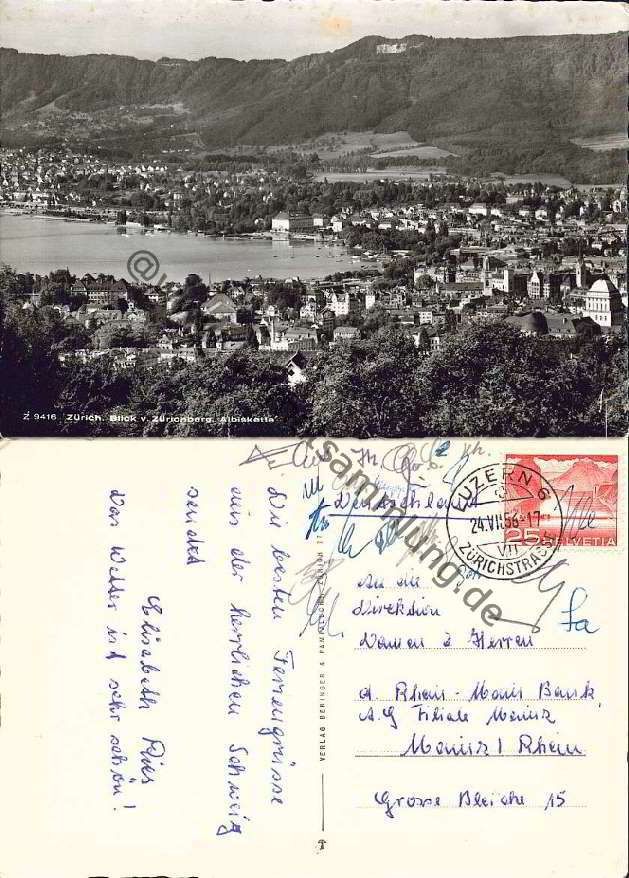 Z 9416 Zürich. Blick v. Zürichberg. Albiskette
@w sammlung.de
Deutschland
LUZERN 6
24.VII.56-17
VII
ZÜRICHSTRASSE
25 HELVETIA
An die
Direktion
Damen & Herren
d. Rhein-Main Bank
A.G Filiale Mainz
Mainz / Rhein
Grosse Bleiche 15
VERLAG BERINGER & PAMPALUCHI, ZÜRICH 17
Die besten Feriengrüsse
aus der herrlichen Schweiz
sendet
Elisabeth Ries
Das Wetter ist sehr schön!